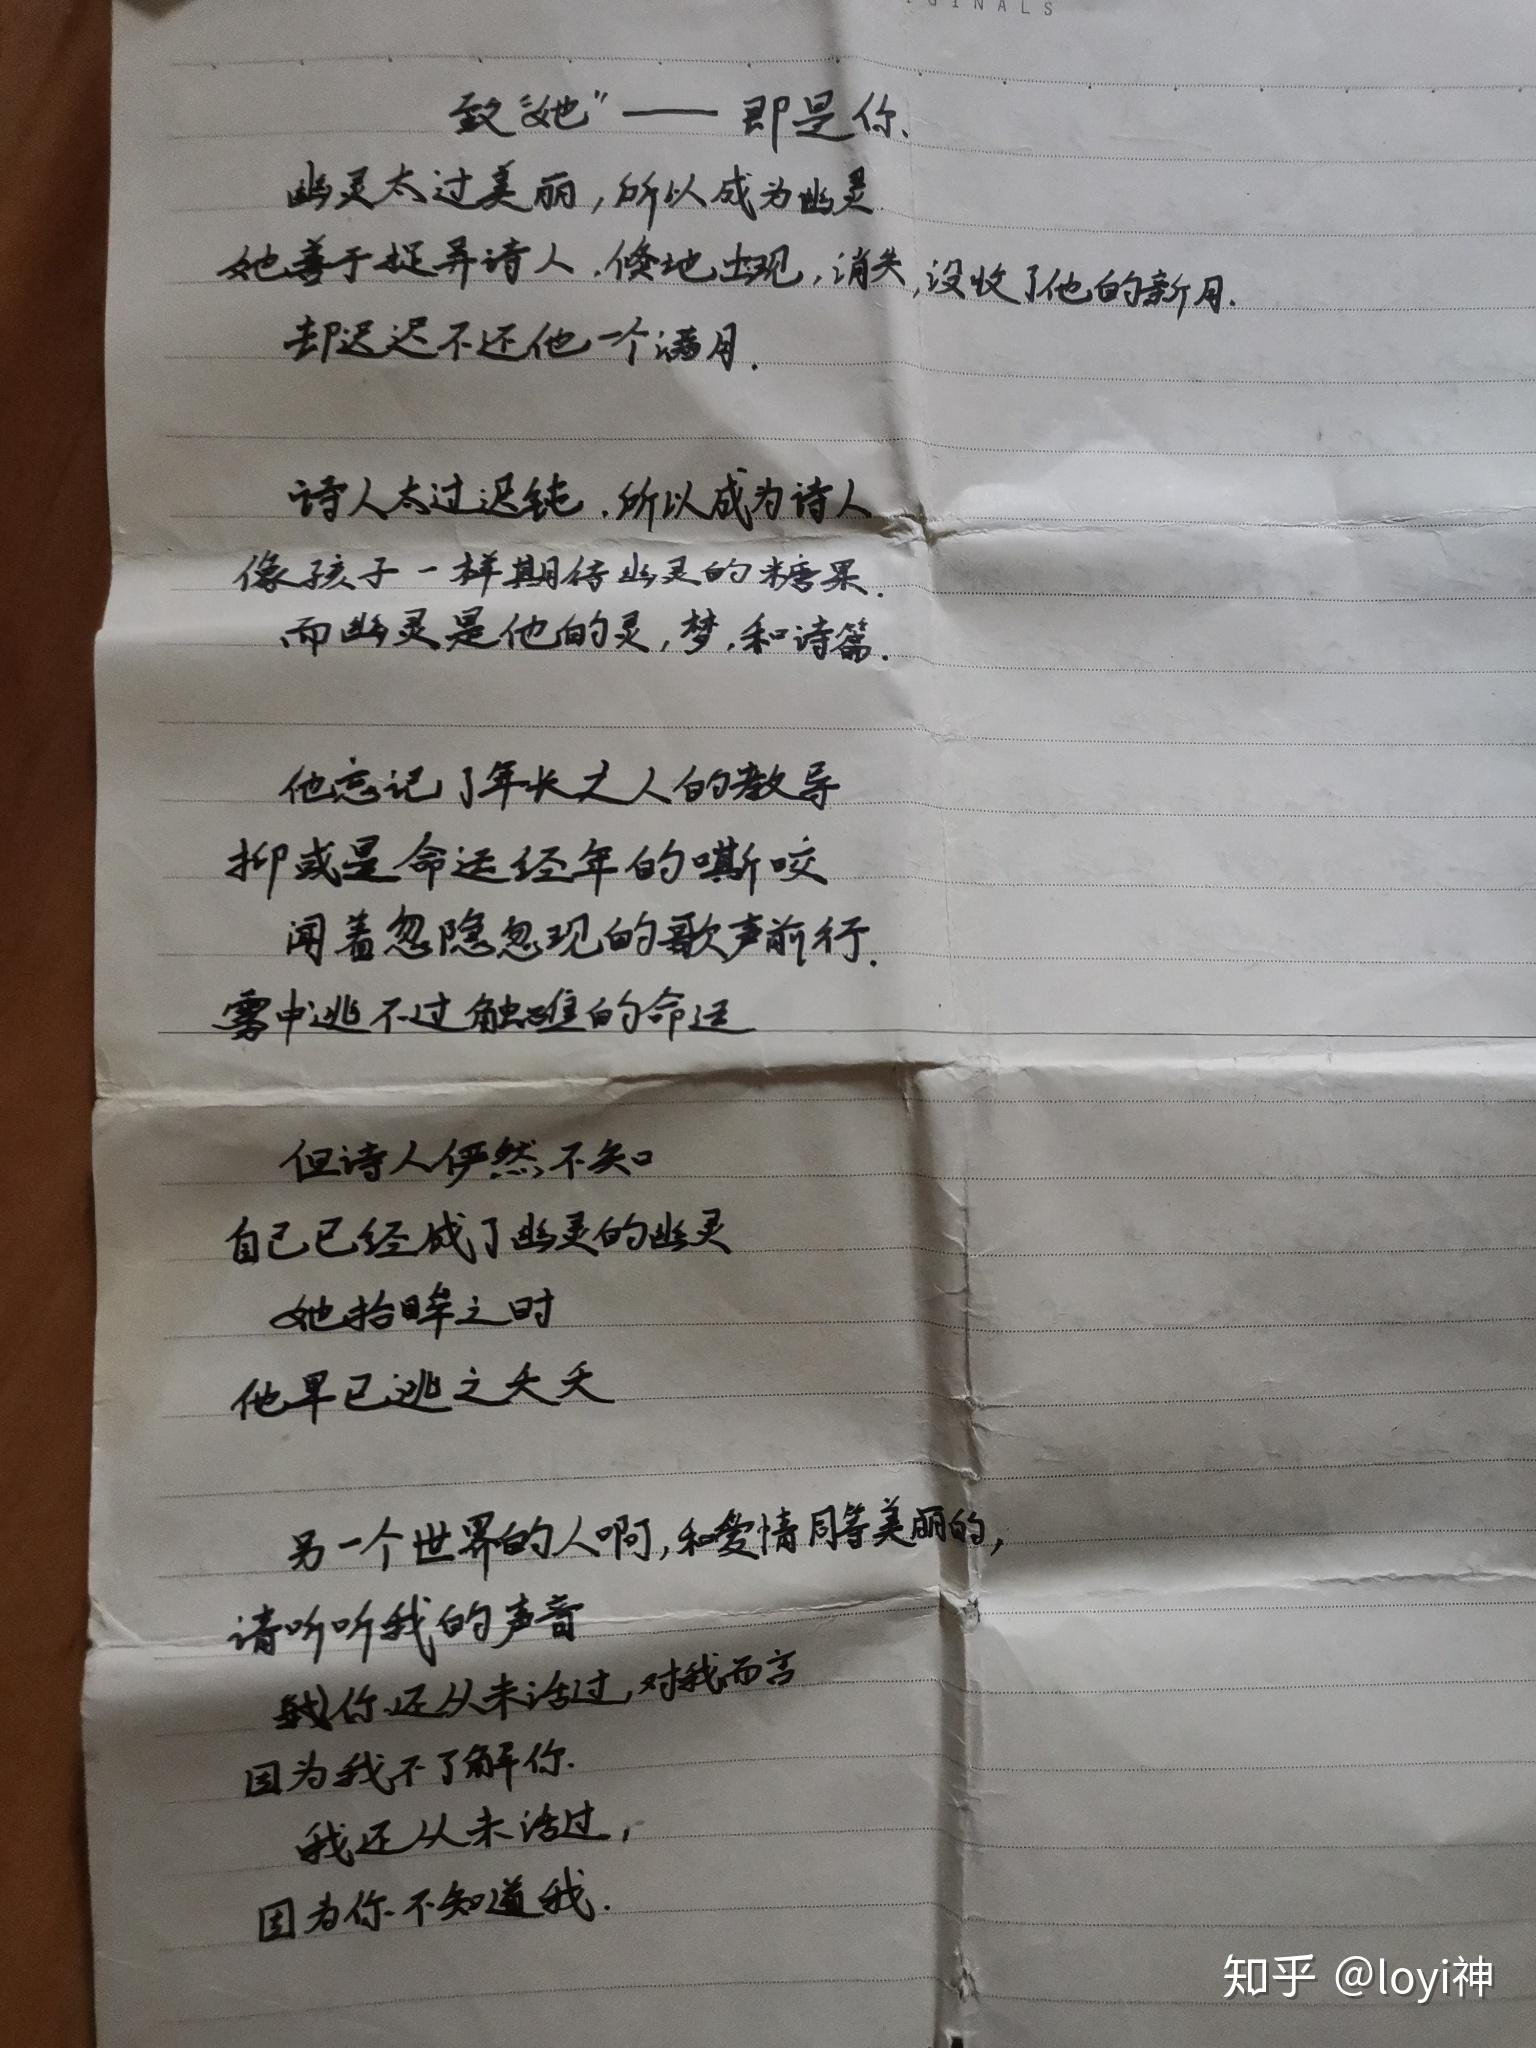 GINALS
致“她”—— 即是你、
幽灵太过美丽，所以成为幽灵
她善于捉弄诗人，倏地出现，消失，没收了他的新月．
却迟迟不还他一个满月．
诗人太过迟钝．所以成为诗人
像孩子一样期待幽灵的糖果．
而幽灵是他的灵，梦，和诗篇．
他忘记了年长之人的教导
抑或是命运经年的嘶咬
闻着忽隐忽现的歌声前行．
雾中逃不过触礁的命运
但诗人俨然不知
自己已经成了幽灵的幽灵
她抬眸之时
他早已逃之夭夭
另一个世界的人啊，和爱情同等美丽的，
请听听我的声音
你还从未活过，对我而言
因为我不了解你．
我还从未活过，
因为你不知道我．
知乎 @loyi神